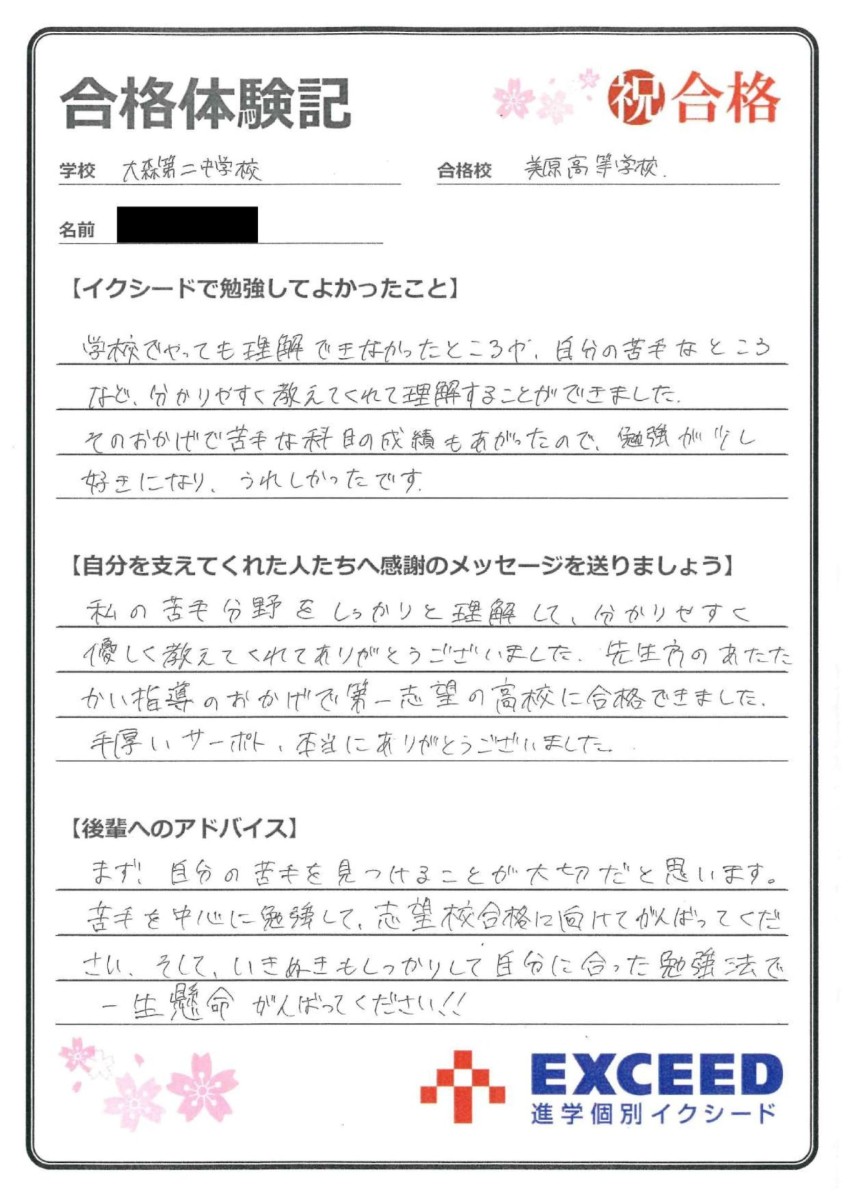 合格体験記
祝合格
学校 大森第二中学校
合格校 美原高等学校.
名前
【イクシードで勉強してよかったこと】
学校でやっても理解できなかったところや、自分の苦手なところ
など、分かりやすく教えてくれて理解することができました.
そのおかげで苦手な科目の成績もあがったので、勉強が少し
好きになり、うれしかったです.
【自分を支えてくれた人たちへ感謝のメッセージを送りましょう】
私の苦手分野をしっかりと理解して、分かりやすく
優しく教えてくれてありがとうございました. 先生方のあたた
かい指導のおかげで第一志望の高校に合格できました.
手厚いサーポト、本当にありがとうございました.
【後輩へのアドバイス】
まず、自分の苦手を見つけることが大切だと思います。
苦手を中心に勉強して、志望校合格に向けてがんばってくだ
さい、そして、いきぬきもしっかりして自分に合った勉強法で
一生懸命がんばってください!!
EXCEED
進学個別イクシード